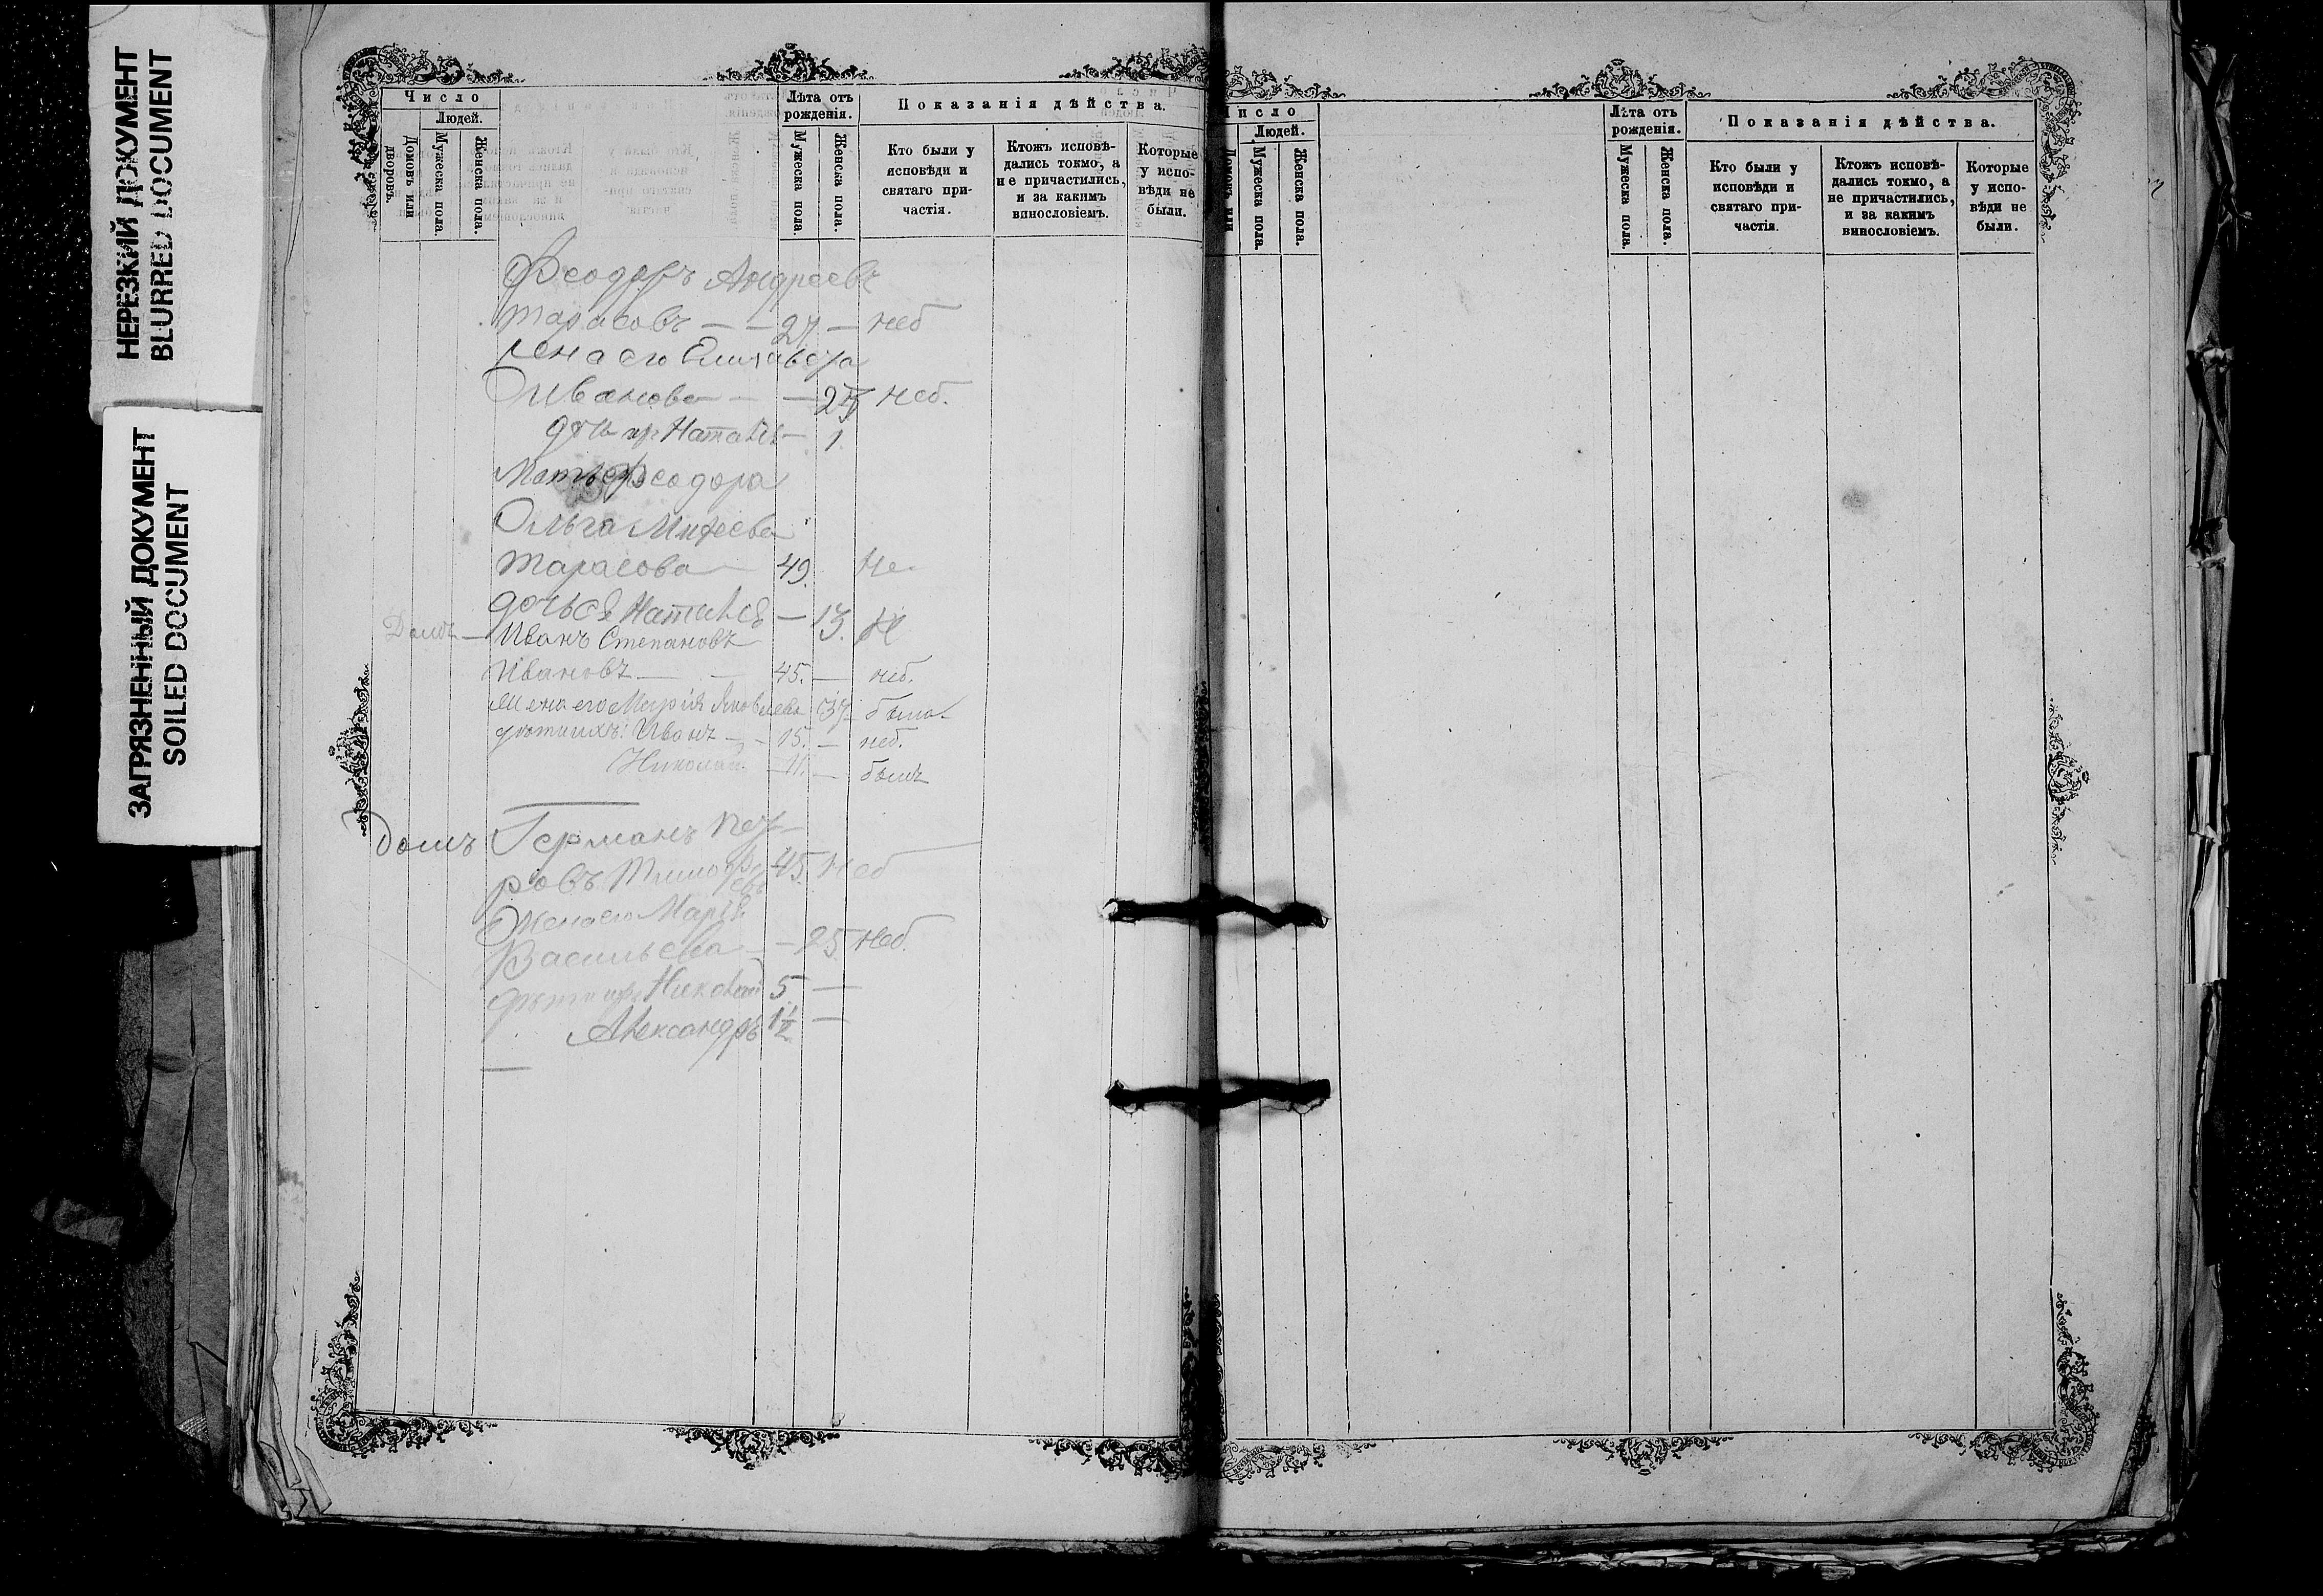 НЕРЕЗКИЙ ДОКУМЕНТ
BLURRED DOCUMENT
ЗАГРЯЗНЕННЫЙ ДОКУМЕНТ
SOILED DOCUMENT
Число
Людей.
Домовъ или дворовъ.
Мужеска пола.
Женска пола.
Лѣта отъ рожденія.
Мужеска пола.
Женска пола.
Показанія дѣйства.
Кто были у исповѣди и святаго причастія.
Ктожъ исповѣдались токмо, а не причастились, и за какимъ винословіемъ.
Которые у исповѣди не были.
Феодоръ Андреевъ
Тарасовъ — — 27. — неб
жена его Елизавета
Иванова — — 25 неб.
дочь их Наталія — 1.
Мать Феодора
Ольга Михеева
Тарасова 49. Не
дочь ея Наталія — 13.
Домъ — Иванъ Степановъ
Ивановъ — 45. — неб.
Жена его Марія Яковлева 37 — была
дѣти ихъ: Иванъ — 15. — неб.
Николай — 11. — былъ
Домъ Германъ Пет-
ровъ Тимофеевъ 45 Неб
Жена его Марія
Васильева — — 25 Неб.
дѣти ихъ Николай 5 —
Александръ 1½ —
Число
Людей.
Домовъ или
Мужеска пола.
Женска пола.
Лѣта отъ рожденія.
Мужеска пола.
Женска пола.
Показанія дѣйства.
Кто были у исповѣди и святаго причастія.
Ктожъ исповѣдались токмо, а не причастились, и за какимъ винословіемъ.
Которые у исповѣди не были.